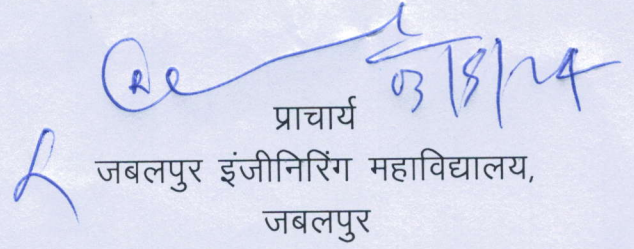 03/8/24
प्राचार्य
जबलपुर इंजीनिरिंग महाविद्यालय,
जबलपुर